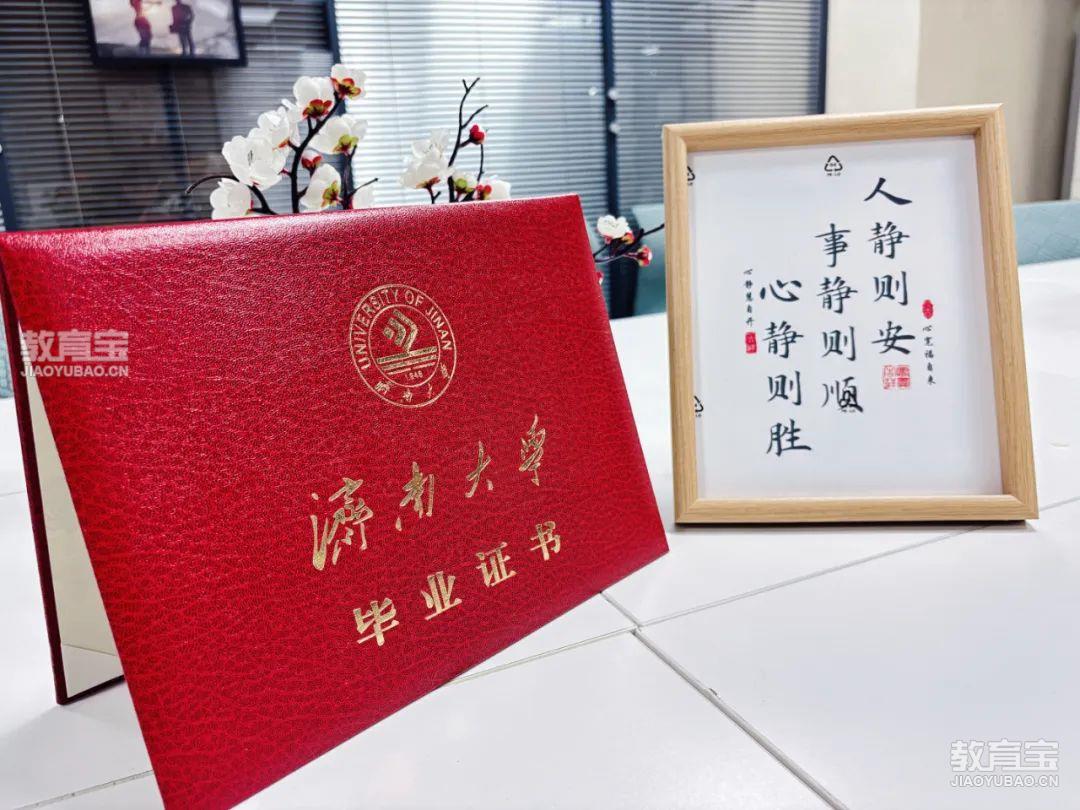 UNIVERSITY OF JINAN
1948
济南大学
濟南大學
毕业证书
人静则安
事静则顺
心静则胜
心宽福自来
心静慧自开
教育宝
JIAOYUBAO.CN
教育宝
JIAOYUBAO.CN